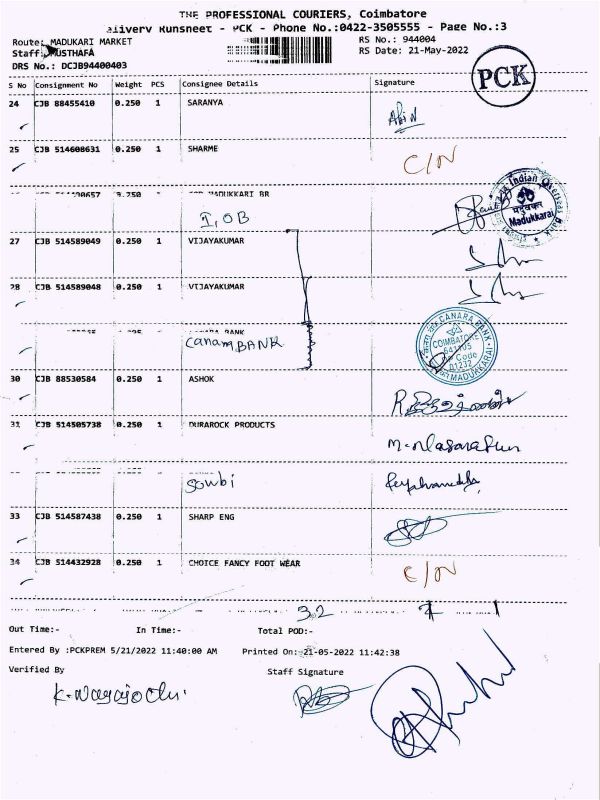 THE PROFESSIONAL COURIERS, Coimbatore
Runsheet - PCK - Phone No.:0422-3505555 - Page No.:3
Route: MADUKARI MARKET
RS No.: 944004
Staff: MUSTHAFA
RS Date: 21-May-2022
DRS No.: DCJB94400403
PCK
S No Consignment No Weight PCS Consignee Details Signature
24 CJB 88455410 0.250 1 SARANYA
25 CJB 514608631 0.250 1 SHARME C/N
MADUKKARI BR
I.O.B
Indian Overseas Bank
Madukkarai
27 CJB 514589049 0.250 1 VIJAYAKUMAR
28 CJB 514589048 0.250 1 VIJAYAKUMAR
BANK
Canara BANK
CANARA BANK
COIMBATORE
641105
Code
01232
MADUKKARAI
30 CJB 88530584 0.250 1 ASHOK
31 CJB 514505738 0.250 1 DURAROCK PRODUCTS
Sowbi
33 CJB 514587438 0.250 1 SHARP ENG
34 CJB 514432928 0.250 1 CHOICE FANCY FOOT WEAR C/N
32
Out Time:- In Time:- Total POD:-
Entered By :PCKPREM 5/21/2022 11:40:00 AM Printed On: 21-05-2022 11:42:38
Verified By Staff Signature